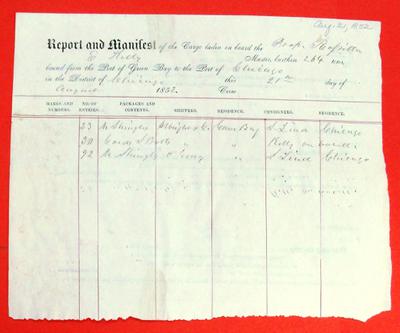 Aug 21, 1852
Report and Manifest of the Cargo laden on board the Prop.
Master, burthen 264 tons,
bound from the Port of Green Bay to the Port of Chicago
in the District of Chicago this 21st day of
August 1852.
MARKS AND NUMBERS. NO. OF ENTRIES. PACKAGES AND CONTENTS. SHIPPERS. RESIDENCE. CONSIGNEES. RESIDENCE.
23 M Shingles Green Bay S Lind Chicago
20 Cords S Bolts " " Kelly
92 M Shingles " S Lind Chicago